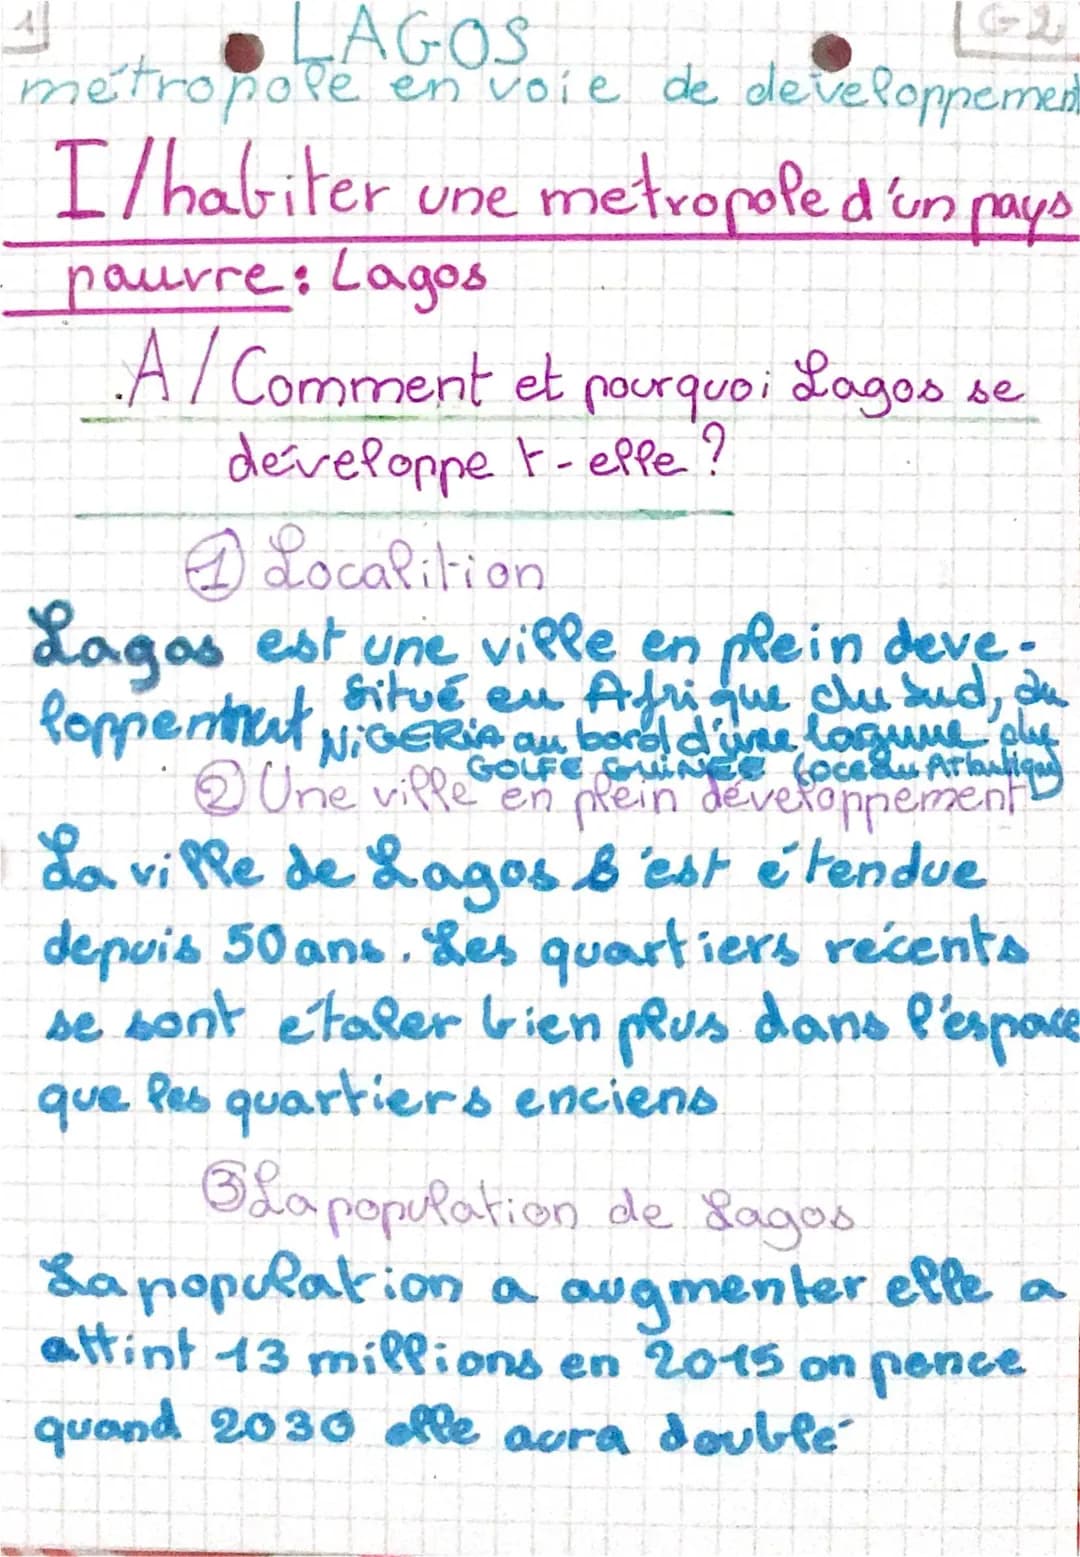 1
G2
LAGOS
métropole en voie de développement
I/habiter une metropole d'un pays
pauvre : Lagos
A/ Comment et pourquoi Lagos se
développe t-elle ?
① Localition
Lagos est une ville en plein deve-
loppement situé en Afrique du Sud, au
NiGERiA au bord d'une lagune du
GOLFE GUINÉE (océan Atlantique)
② Une ville en plein développement
La ville de Lagos s'est étendue
depuis 50 ans. Les quartiers récents
se sont étaler bien plus dans l'espace
que les quartiers enciens
③ La population de Lagos
La population a augmenter elle a
attint 13 millions en 2015 on pence
quand 2030 elle aura doublé